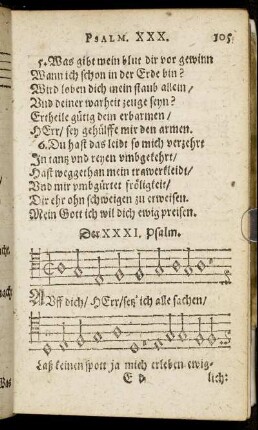 PSALM. XXX. 105
5. Was gibt mein blut dir vor gewinn
Wann ich schon in der Erde bin?
Wird loben dich mein staub allein/
Vnd deiner warheit zeuge seyn?
Ertheile gütig dein erbarmen/
HErr/ sey gehülffe mir den armen.
6. Du hast das leidt so mich verzehrt
In tantz vnd reyen vmbgekehrt/
Hast weggethan mein trawerkleidt/
Vnd mir vmbgürtet fröligkeit/
Dir ehr ohn schweigen zu erweisen.
Mein Gott ich wil dich ewig preisen.
Der XXXI. Psalm.
AUff dich/ HErr/ setz' ich alle sachen/
Laß keinen spott ja mich erleben ewig-
E v lich: